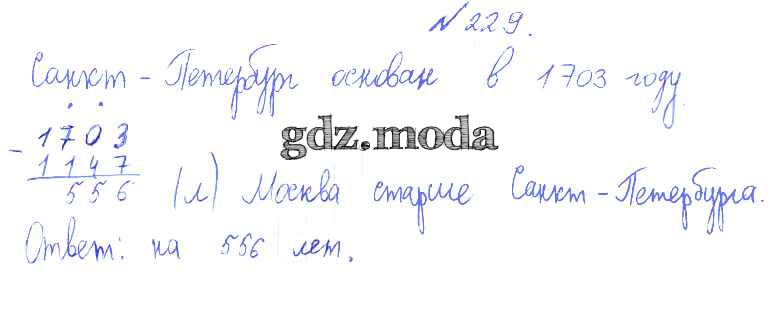 №229.
Санкт-Петербург основан в 1703 году.
- 1703
1147
556 (л) Москва старше Санкт-Петербурга.
gdz.moda
Ответ: на 556 лет.